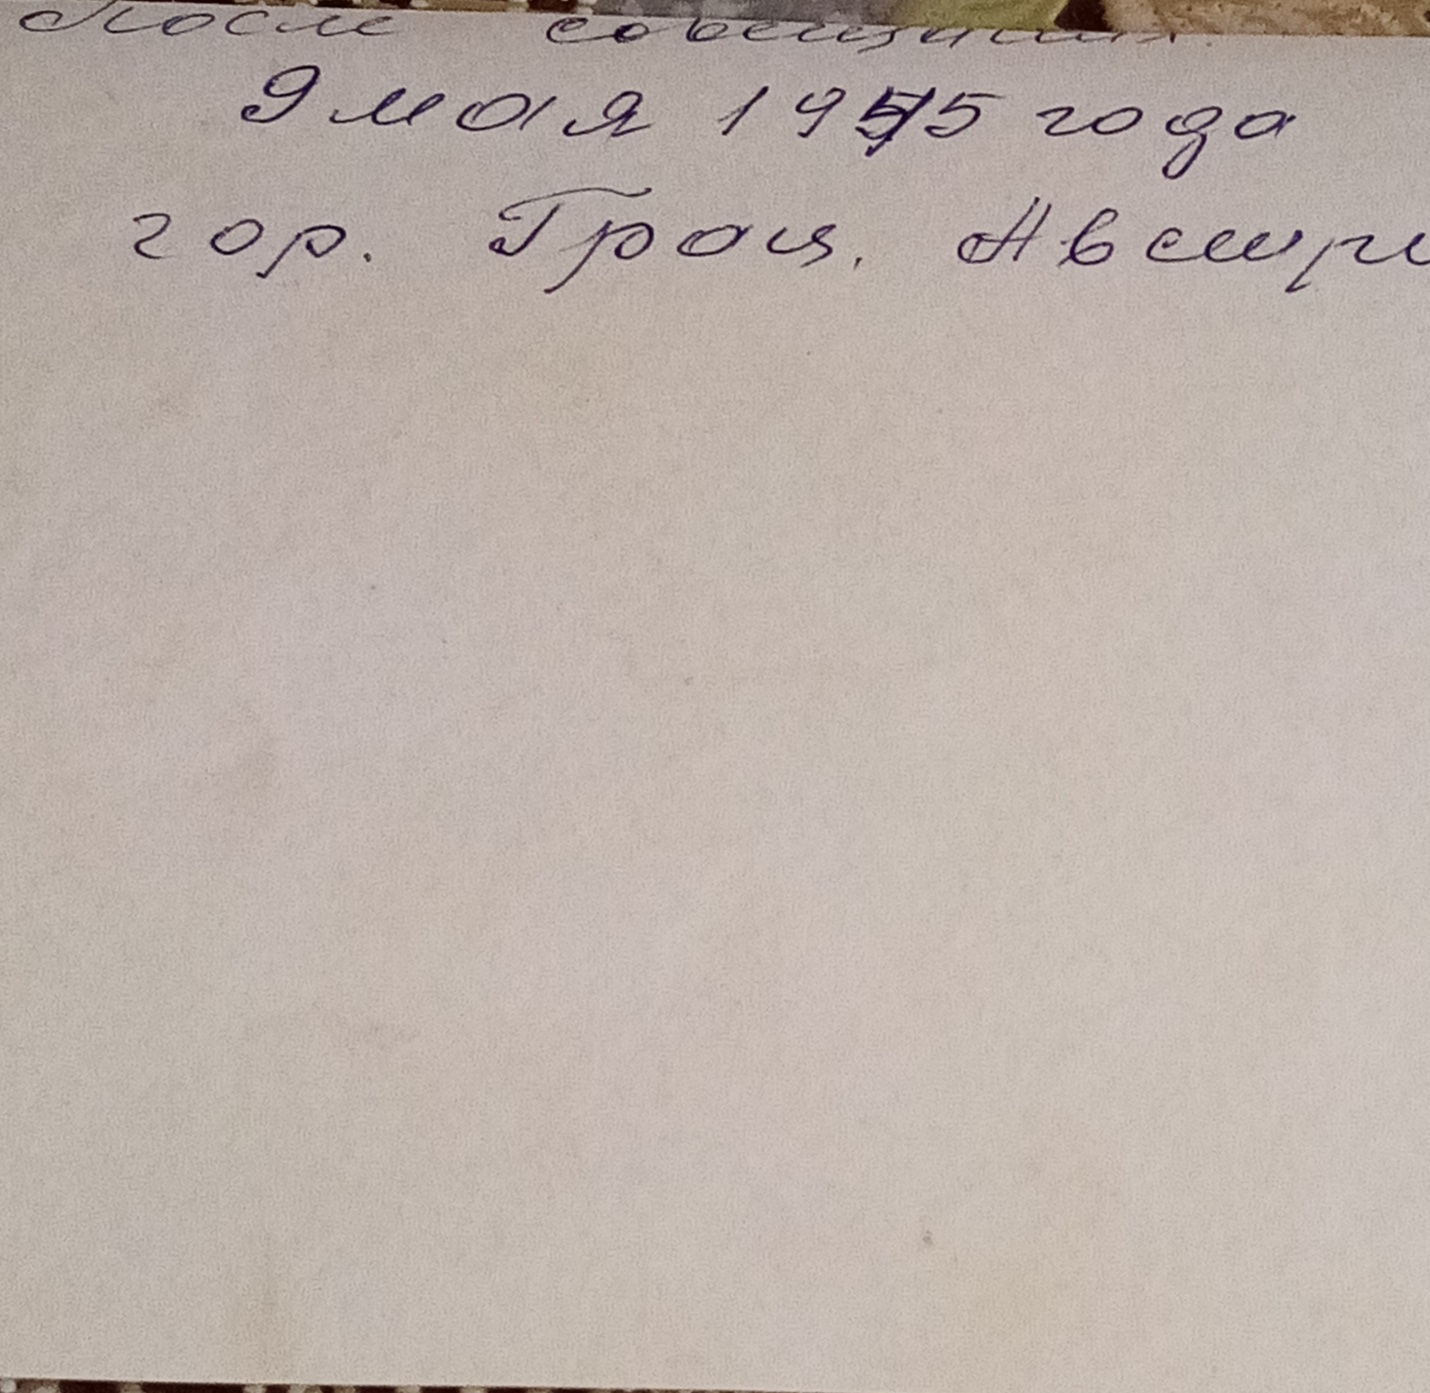 После совещания.
9 мая 1945 года
гор. Грац. Австри